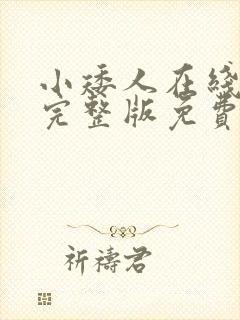 小矮人在綫
完整版免費
祈禱君